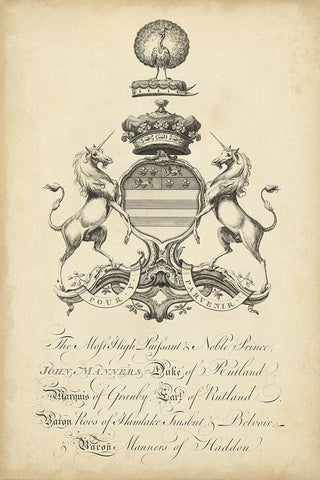 POUR Y PARVENIR
The Most High Puissant & Noble Prince,
JOHN MANNERS, Duke of Rutland
Marquis of Granby, Earl of Rutland
Baron Roos of Hamlake, Trusbut & Belvoir,
& Baron Manners of Haddon